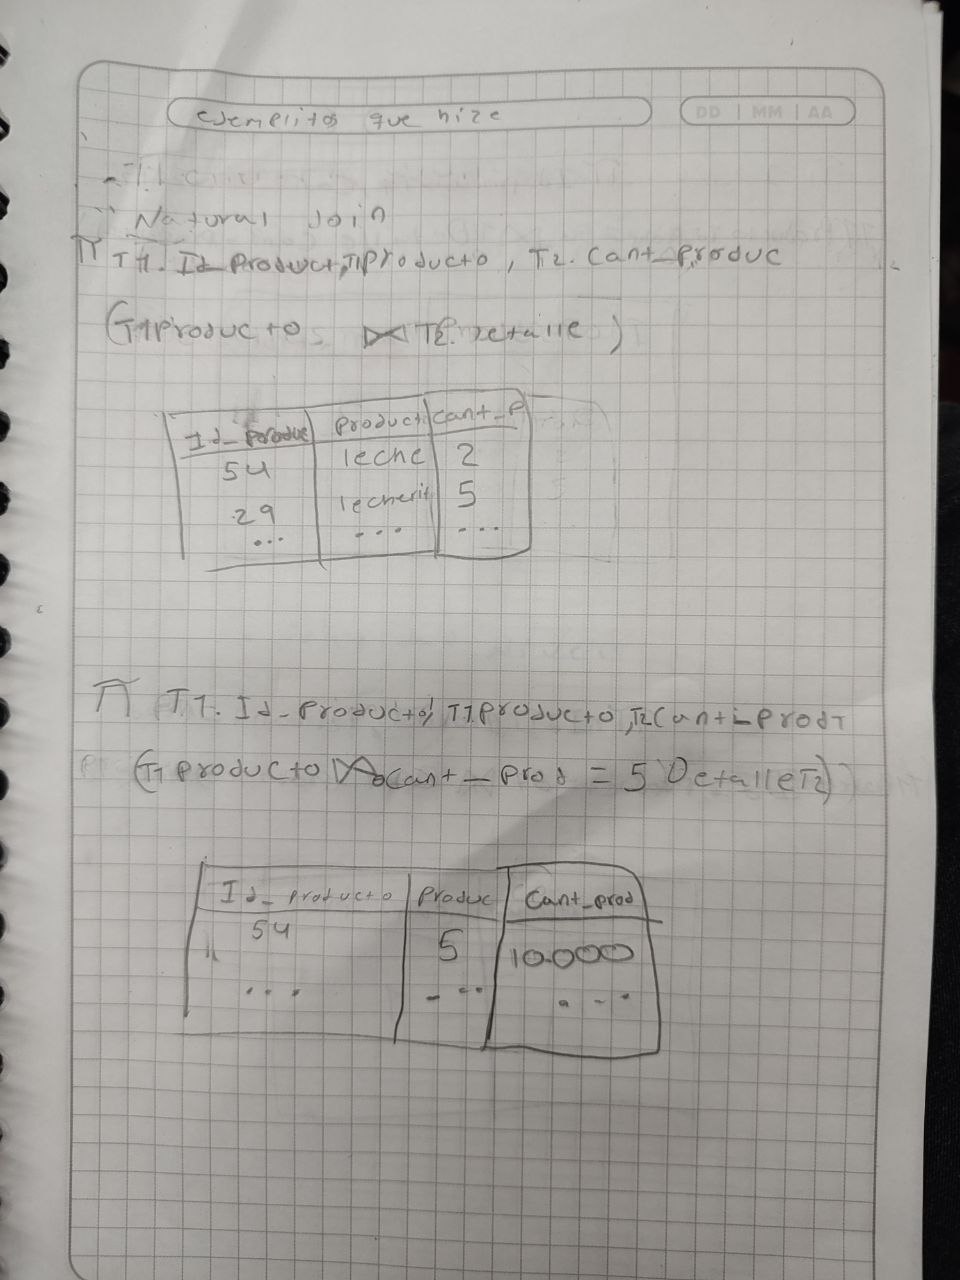 Ejemplitos que hize
DD | MM | AA
Natural Join
π T1. Id_Product, T1Producto, T2. Cant_Produc
(T1Producto ⋈ T2. Detalle)
Id_Produc Product Cant_P
54 leche 2
29 lecherit 5
... ... ...
π T.1. Id_Producto, T1Producto, T2Cant_Prod
(T1 Producto ⋈ Cant_Prod = 5 Detalle T2)
Id_Producto Produc Cant_Prod
54 5 10.000
... ... ...